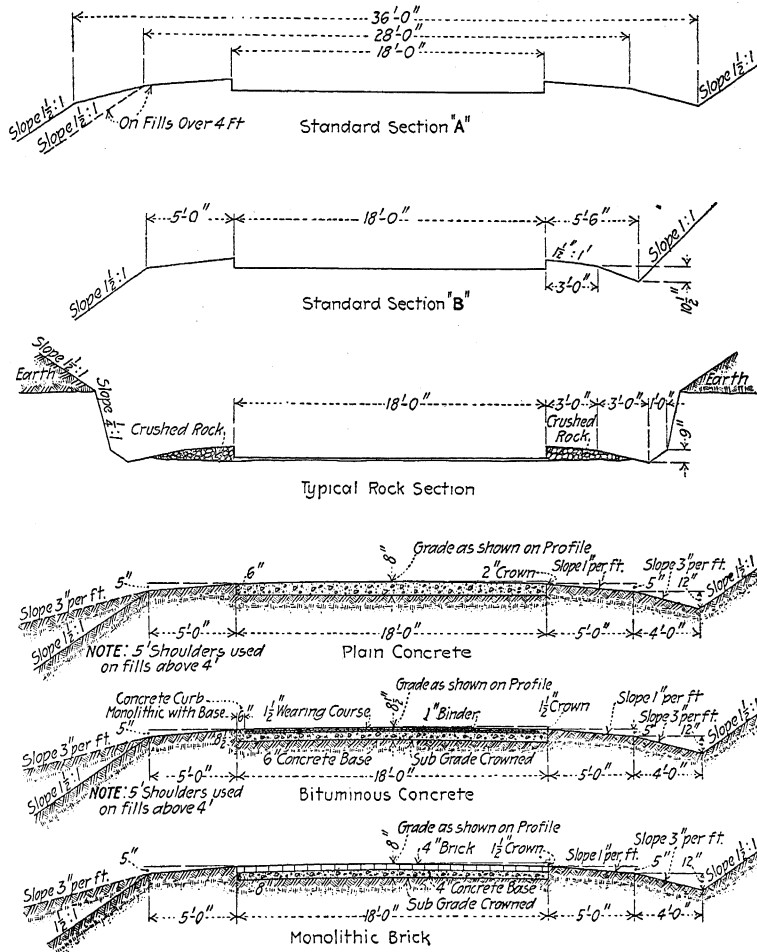 36'-0"
28'-0"
18'-0"
Slope 1½:1
Slope 1½:1
On Fills Over 4 Ft
Slope 1½:1
Standard Section "A"
5'-0"
18'-0"
5'-6"
1½":1'
Slope 1:1
Slope 1½:1
3'-0"
10½"
Standard Section "B"
Slope 1½:1
Earth
Slope ¼:1
Earth
18'-0"
3'-0"
3'-0"
1'-0"
Crushed Rock
Crushed
Rock
6"
Typical Rock Section
Grade as shown on Profile
8"
6"
2" Crown
Slope 1" per ft.
Slope 3" per ft.
5"
5"
12"
Slope 1½:1
Slope 3" per ft.
Slope 1½:1
5'-0"
18'-0"
5'-0"
4'-0"
NOTE: 5' Shoulders used
on fills above 4'
Plain Concrete
Concrete Curb
Monolithic with Base
6"
1½" Wearing Course
8½"
Grade as shown on Profile
1" Binder
1½" Crown
Slope 1" per ft
Slope 3" per ft.
5"
8½
5"
12"
Slope 1½:1
Slope 3" per ft.
Slope 1½:1
6" Concrete Base
Sub Grade Crowned
5'-0"
18'-0"
5'-0"
4'-0"
NOTE: 5' Shoulders used
on fills above 4'
Bituminous Concrete
Grade as shown on Profile
8"
4" Brick
1½" Crown
Slope 1" per ft.
Slope 3" per ft.
5"
5"
12"
Slope 1½:1
Slope 3" per ft.
1½:1
8"
4" Concrete Base
Sub Grade Crowned
5'-0"
18'-0"
5'-0"
4'-0"
Monolithic Brick